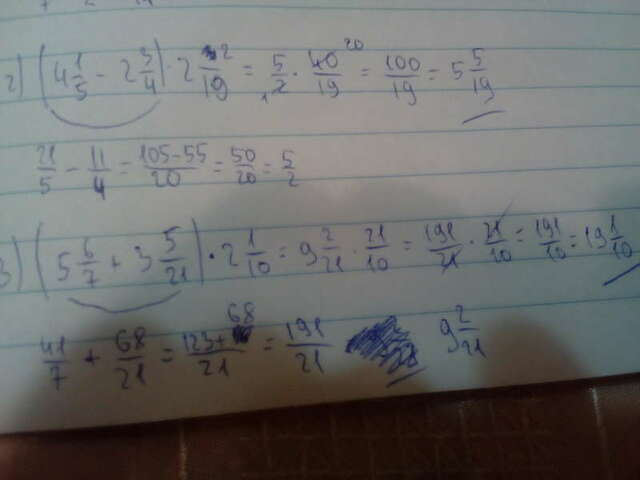 2) (4 1/5 - 2 3/4) · 2 2/19 = 5/2 · 40/19 20 = 100/19 = 5 5/19
21/5 - 11/4 = 105-55/20 = 50/20 = 5/2
3) (5 6/7 + 3 5/21) · 2 1/10 = 9 2/21 · 21/10 = 191/21 · 21/10 = 191/10 = 19 1/10
41/7 + 68/21 = 123+68/21 = 191/21 9 2/21